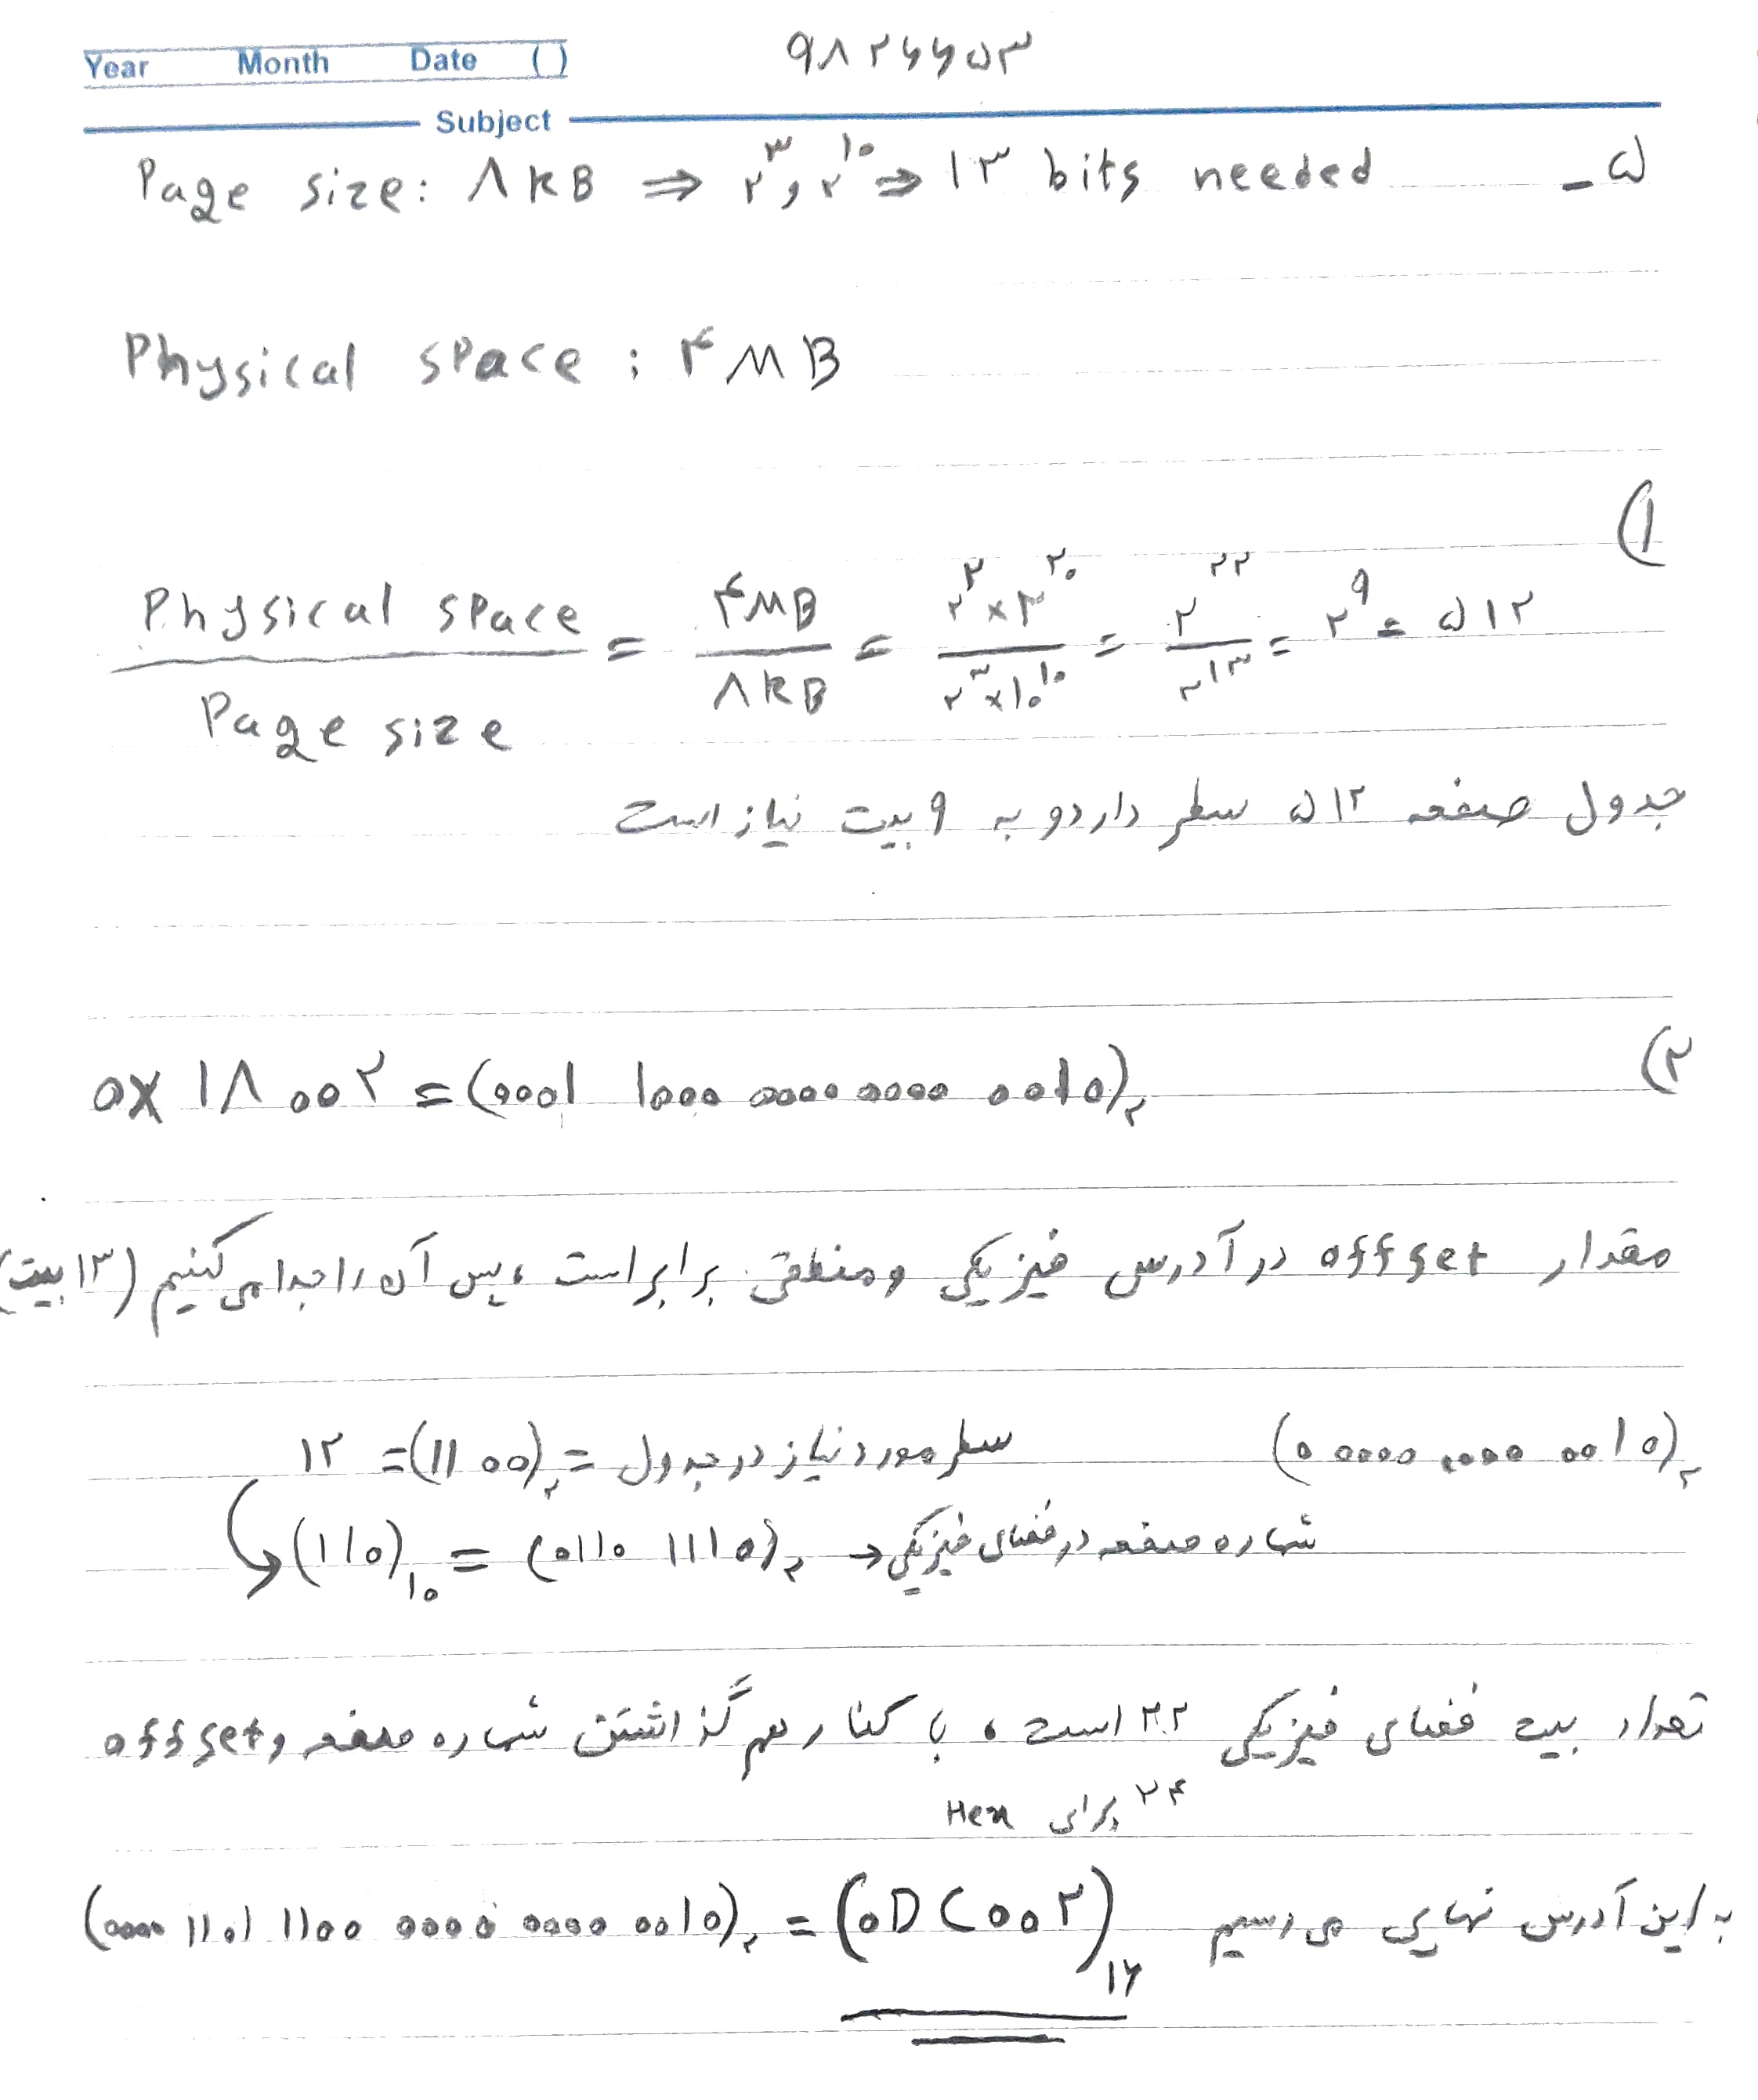 Year Month Date ( )
۹۸۲۶۶۵۳
Subject
۵- Page size: ۸KB ⇒ ۲^۳ و ۲^۱۰ ⇒ ۱۳ bits needed
Physical space : ۴MB
۱)
Physical space / Page size = ۴MB / ۸KB = ۲^۲ × ۲^۲۰ / ۲^۳ × ۱۰^۱۰ = ۲^۲۲ / ۲^۱۳ = ۲^۹ = ۵۱۲
جدول صفحه ۵۱۲ سطر دارد و به ۹ بیت نیاز است
۲) 0x ۱۸۰۰۲ = (0001 1000 0000 0000 0010)₂
مقدار offset در آدرس فیزیکی و منطقی برابر است، پس آن را جدا می‌کنیم (۱۳ بیت)
(0 0000 0000 0010)₂ سطر مورد نیاز در جدول = (11 00)₂ = ۱۲
شماره صفحه در فضای فیزیکی → (0110 1110)₂ = (110)₁₀
تعداد بیت فضای فیزیکی ۲۲ است، با کنار هم گذاشتن شماره صفحه و offset
۲۴ برای Hex
به این آدرس نهایی می‌رسیم (0000 1101 1100 0000 0000 0010)₂ = (0DC00۲)₁۶